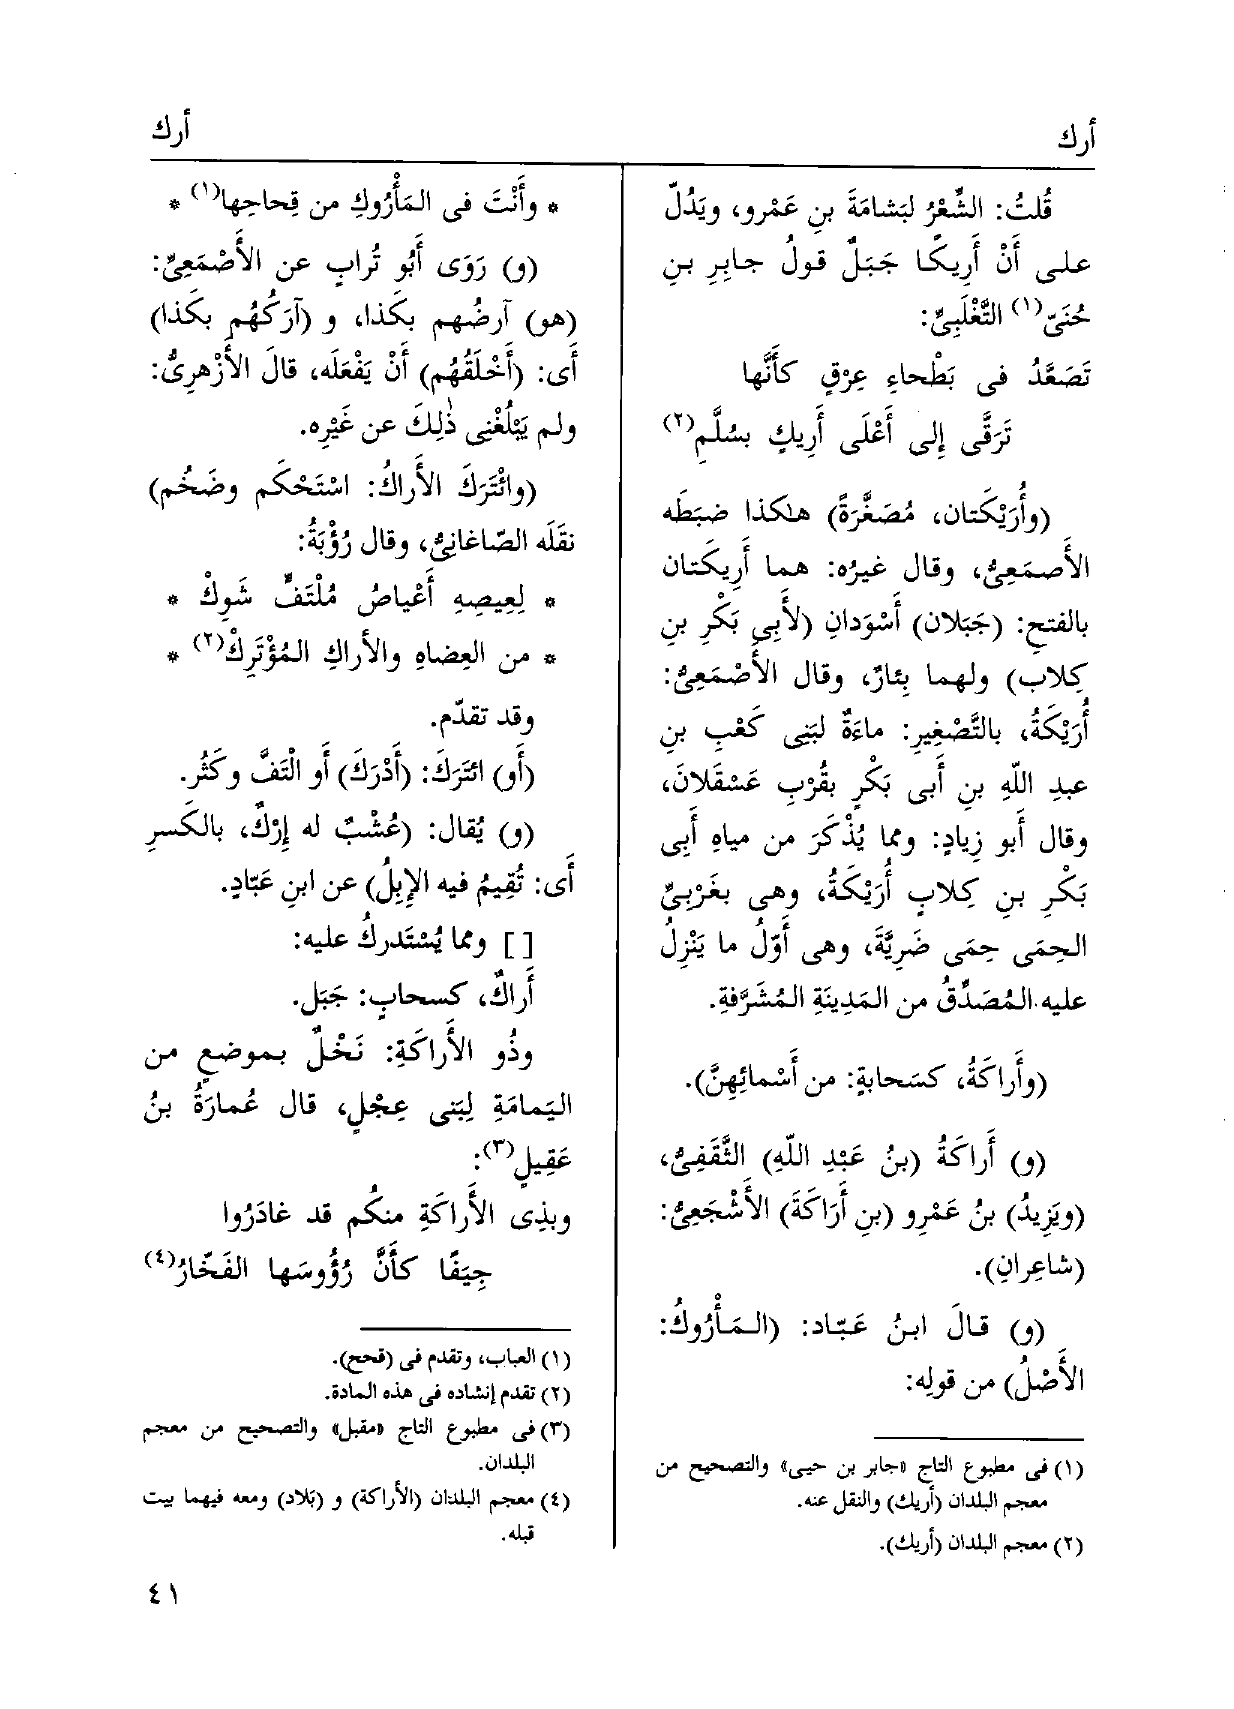 أرك
أرك
قُلتُ: الشِّعْرُ لبَشامَةَ بنِ عَمْرو، ويَدُلّ
على أَنْ أَرِيكًا جَبَلٌ قولُ جابِرِ بنِ
حُنَىّ(١) التَّغْلَبِىِّ:
تَصَعَّدُ فى بَطْحاءِ عِرْقٍ كأَنَّها
تَرَقَّى إِلى أَعْلَى أَرِيكٍ بسُلَّمِ(٢)
(وأُرَيْكَتان، مُصَغَّرَةً) هٰكذا ضبَطَه
الأَصمَعِىُّ، وقال غيرُه: هما أَرِيكَتان
بالفتحِ: (جَبَلان) أَسْوَدانِ (لأَبِى بَكْرِ بنِ
كِلاب) ولهما بِئارٌ، وقال الأَصْمَعِىُّ:
أُرَيْكَةُ، بالتَّصْغِيرِ: ماءَةٌ لبَنِى كَعْبِ بنِ
عبدِ اللّهِ بنِ أَبى بَكْرٍ بقُرْبِ عَسْقَلانَ،
وقال أَبو زِيادٍ: ومما يُذْكَرَ من مياهِ أَبِى
بَكْرِ بنِ كِلابٍ أُرَيْكَةُ، وهى بغَرْبِىِّ
الحِمَى حِمَى ضَرِيَّةَ، وهى أَوّلُ ما يَنْزِلُ
عليه المُصَدِّقُ من المَدِينَةِ المُشَرَّفةِ.
(وأَراكَةُ، كسَحابةٍ: من أَسْمائِهِنَّ).
(و) أَراكَةُ (بنُ عَبْدِ اللّهِ) الثَّقَفِىُّ،
(ويَزِيدُ) بنُ عَمْرِو (بنِ أَرَاكَةَ) الأَشْجَعِىُّ:
(شاعِرانِ).
(و) قالَ ابنُ عَبّاد: (المَأْرُوكُ:
الأَصْلُ) من قولِه:
(١) فى مطبوع التاج «جابر بن حيى» والتصحيح من
معجم البلدان (أريك) والنقل عنه.
(٢) معجم البلدان (أريك).
* وأَنْتَ فى المَأْرُوكِ من قِحاحِها(١) *
(و) رَوَى أَبُو تُرابٍ عن الأَصْمَعِىِّ:
(هو) آرضُهم بكَذا، و (آرَكُهُم بكَذا)
أَى: (أَخْلَقُهُم) أَنْ يَفْعَلَه، قالَ الأَزْهرِىُّ:
ولم يَبْلُغْنِى ذٰلِكَ عن غَيْرِه.
(وائْتَرَكَ الأَراكُ: اسْتَحْكَم وضَخُم)
نقَلَه الصّاغانِىُّ، وقال رُؤْبَةُ:
* لِعِيصِهِ أَعْياصُ مُلْتَفٍّ شَوِكْ *
* من العِضاهِ والأَراكِ المُؤْتَرِكْ(٢) *
وقد تقدّم.
(أَو) ائتَرَكَ: (أَدْرَكَ) أَو التَفَّ وكَثُر.
(و) يُقال: (عُشْبٌ له إِرْكٌ، بالكَسرِ
أَى: تُقِيمُ فيه الإِبِلُ) عن ابنِ عَبّادٍ.
[ ] ومما يُسْتَدركُ عليه:
أَراكٌ، كسحابٍ: جَبَل.
وذُو الأَراكَةِ: نَخْلٌ بموضعٍ من
اليَمامَةِ لِبَنى عِجْلٍ، قال عُمارَةُ بنُ
عَقِيلٍ(٣):
وبذِى الأَراكَةِ منكُم قد غادَرُوا
جِيَفًا كأَنَّ رُؤُوسَها الفَخّارُ(٤)
(١) العباب، وتقدم فى (قحح).
(٢) تقدم إنشاده فى هذه المادة.
(٣) فى مطبوع التاج «مقبل» والتصحيح من معجم
البلدان.
(٤) معجم البلدان (الأراكة) و (بَلاد) ومعه فيهما بيت
قبله.
٤١